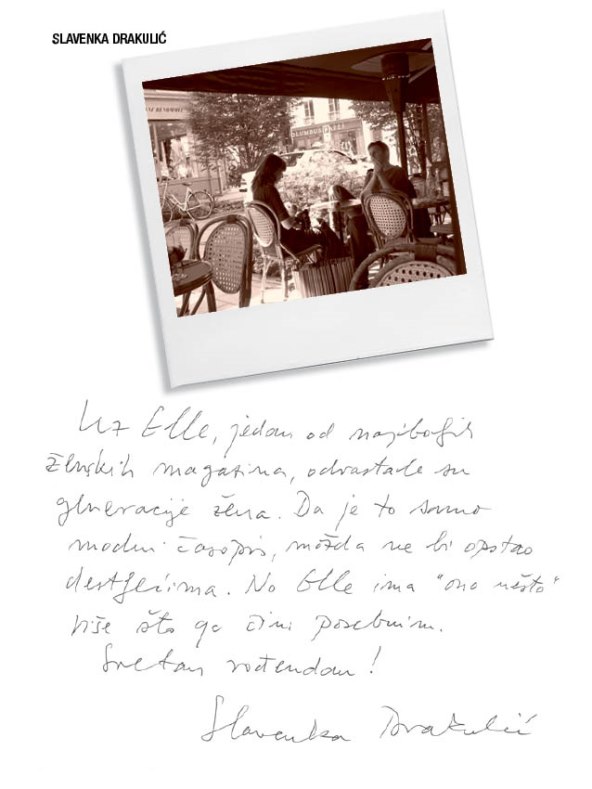 SLAVENKA DRAKULIĆ
Uz Elle, jedan od najboljih
ženskih magazina, odrastale su
generacije žena. Da je to samo
modni časopis, možda ne bi opstao
desetljećima. No Elle ima "ono nešto"
više što ga čini posebnim.
Sretan rođendan!
Slavenka Drakulić